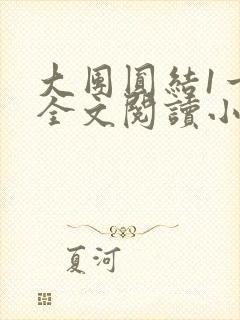 大團圓結1一
全文閱讀小
夏河